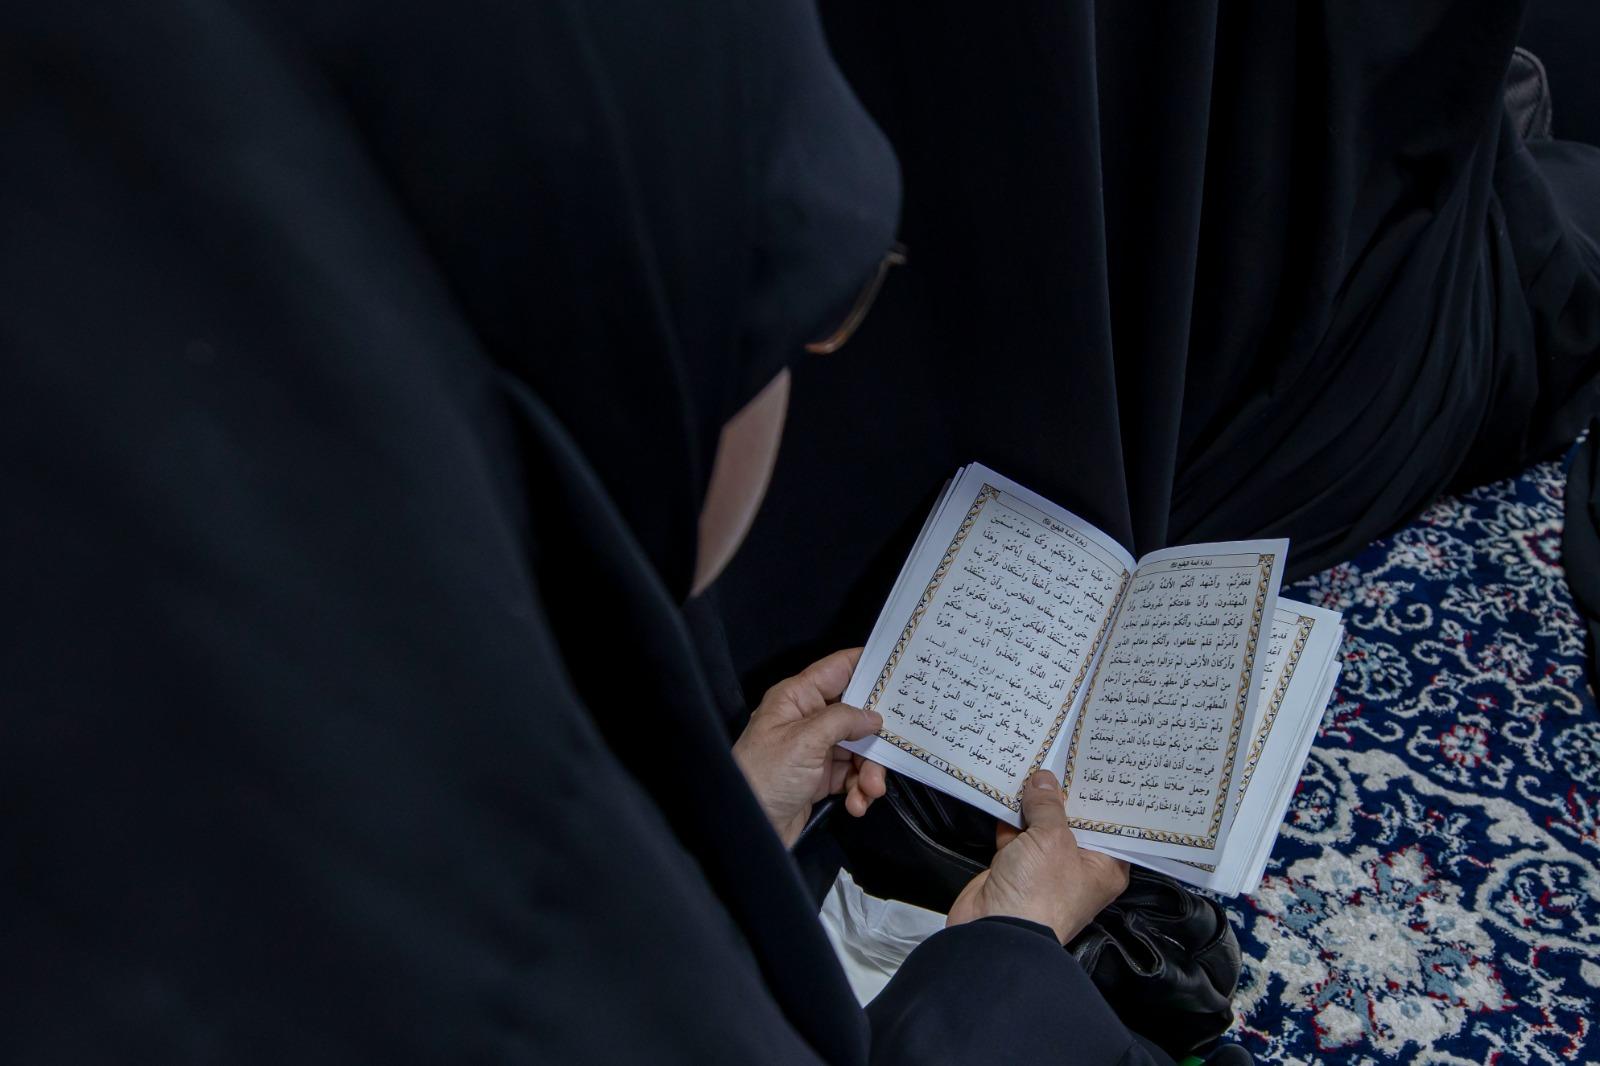 زيارة أئمة البقيع (ع)
فَغَفَرْتُمْ، وَأَشْهَدُ أَنَّكُمُ الْأَئِمَّةُ الرَّاشِدُونَ
الْمُهْتَدُونَ، وَأَنَّ طَاعَتَكُمْ مَفْرُوضَةٌ، وَأَنَّ
قَوْلَكُمُ الصِّدْقُ، وَأَنَّكُمْ دَعَوْتُمْ فَلَمْ تُجَابُوا،
وَأَمَرْتُمْ فَلَمْ تُطَاعُوا، وَأَنَّكُمْ دَعَائِمُ الدِّينِ
وَأَرْكَانُ الْأَرْضِ، لَمْ تَزَالُوا بِعَيْنِ اللهِ يَنْسَخُكُمْ
مِنْ أَصْلَابِ كُلِّ مُطَهَّرٍ، وَيَنْقُلُكُمْ مِنْ أَرْحَامِ
الْمُطَهَّرَاتِ، لَمْ تُدَنِّسْكُمُ الْجَاهِلِيَّةُ الْجَهْلَاءُ
وَلَمْ تَشْرَكْ فِيكُمْ فِتَنُ الْأَهْوَاءِ، طِبْتُمْ وَطَابَ
مَنْبَتُكُمْ، مَنَّ بِكُمْ عَلَيْنَا دَيَّانُ الدِّينِ، فَجَعَلَكُمْ
فِي بُيُوتٍ أَذِنَ اللهُ أَنْ تُرْفَعَ وَيُذْكَرَ فِيهَا اسْمُهُ،
وَجَعَلَ صَلَاتَنَا عَلَيْكُمْ رَحْمَةً لَنَا وَكَفَّارَةً
لِذُنُوبِنَا، إِذِ اخْتَارَكُمُ اللهُ لَنَا، وَطَيَّبَ خَلْقَنَا بِمَا
٨٨
زيارة أئمة البقيع (ع)
مَنَّ عَلَيْنَا مِنْ وِلَايَتِكُمْ، وَكُنَّا عِنْدَهُ مُسَمَّيْنَ
بِعِلْمِكُمْ، مُعْتَرِفِينَ بِتَصْدِيقِنَا إِيَّاكُمْ، وَهَذَا
مَقَامُ مَنْ أَسْرَفَ وَأَخْطَأَ وَاسْتَكَانَ وَأَقَرَّ بِمَا
جَنَى وَرَجَا بِمَقَامِهِ الْخَلَاصَ، وَأَنْ يَسْتَنْقِذَهُ
بِكُمْ مُسْتَنْقِذُ الْهَلْكَى مِنَ الرَّدَى، فَكُونُوا لِي
شُفَعَاءَ، فَقَدْ وَفَدْتُ إِلَيْكُمْ إِذْ رَغِبَ عَنْكُمْ
أَهْلُ الدُّنْيَا، وَاتَّخَذُوا آيَاتِ اللهِ هُزُوًا
وَاسْتَكْبَرُوا عَنْهَا، ثم ارفع رأسك إلى السماء
وقل: يَا مَنْ هُوَ قَائِمٌ لَا يَسْهُو، وَدَائِمٌ لَا يَلْهُو،
وَمُحِيطٌ بِكُلِّ شَيْءٍ لَكَ الْمَنُّ بِمَا وَفَّقْتَنِي
وَعَرَّفْتَنِي بِمَا أَقَمْتَنِي عَلَيْهِ، إِذْ صَدَّ عَنْهُ
عِبَادُكَ، وَجَهِلُوا مَعْرِفَتَهُ، وَاسْتَخَفُّوا بِحَقِّهِ،
٨٩